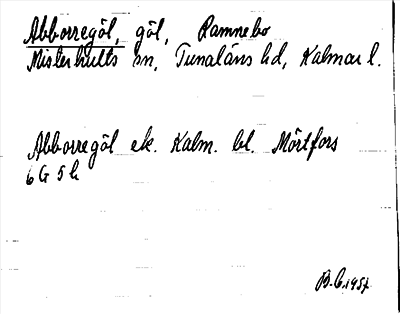 Abborregöl, göl, Ramnebo
Misterhults sn, Tunaläns hd, Kalmar l.
Abborregöl ek. Kalm. bl. Mörtfors
6 G 5 h
B.C. 1957